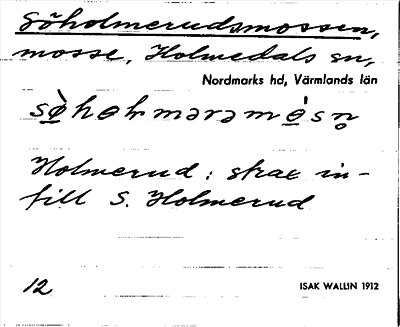 Söholmerudsmossen,
mosse, Holmedals sn,
Nordmarks hd, Värmlands län
Holmerud: strax in-
till S. Holmerud
12 ISAK WALLIN 1912